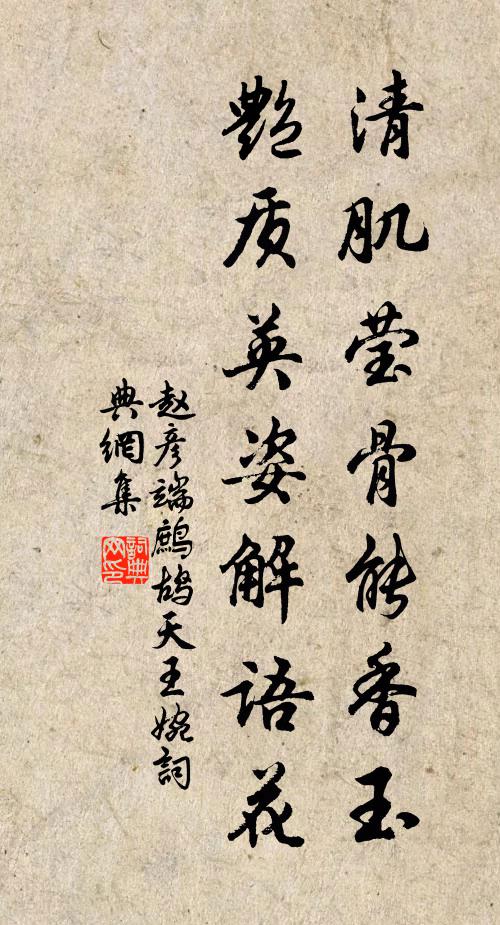 清肌莹骨能香玉
艳质英姿解语花
赵彦端鹧鸪天王婉詞
典網集
詞典網印